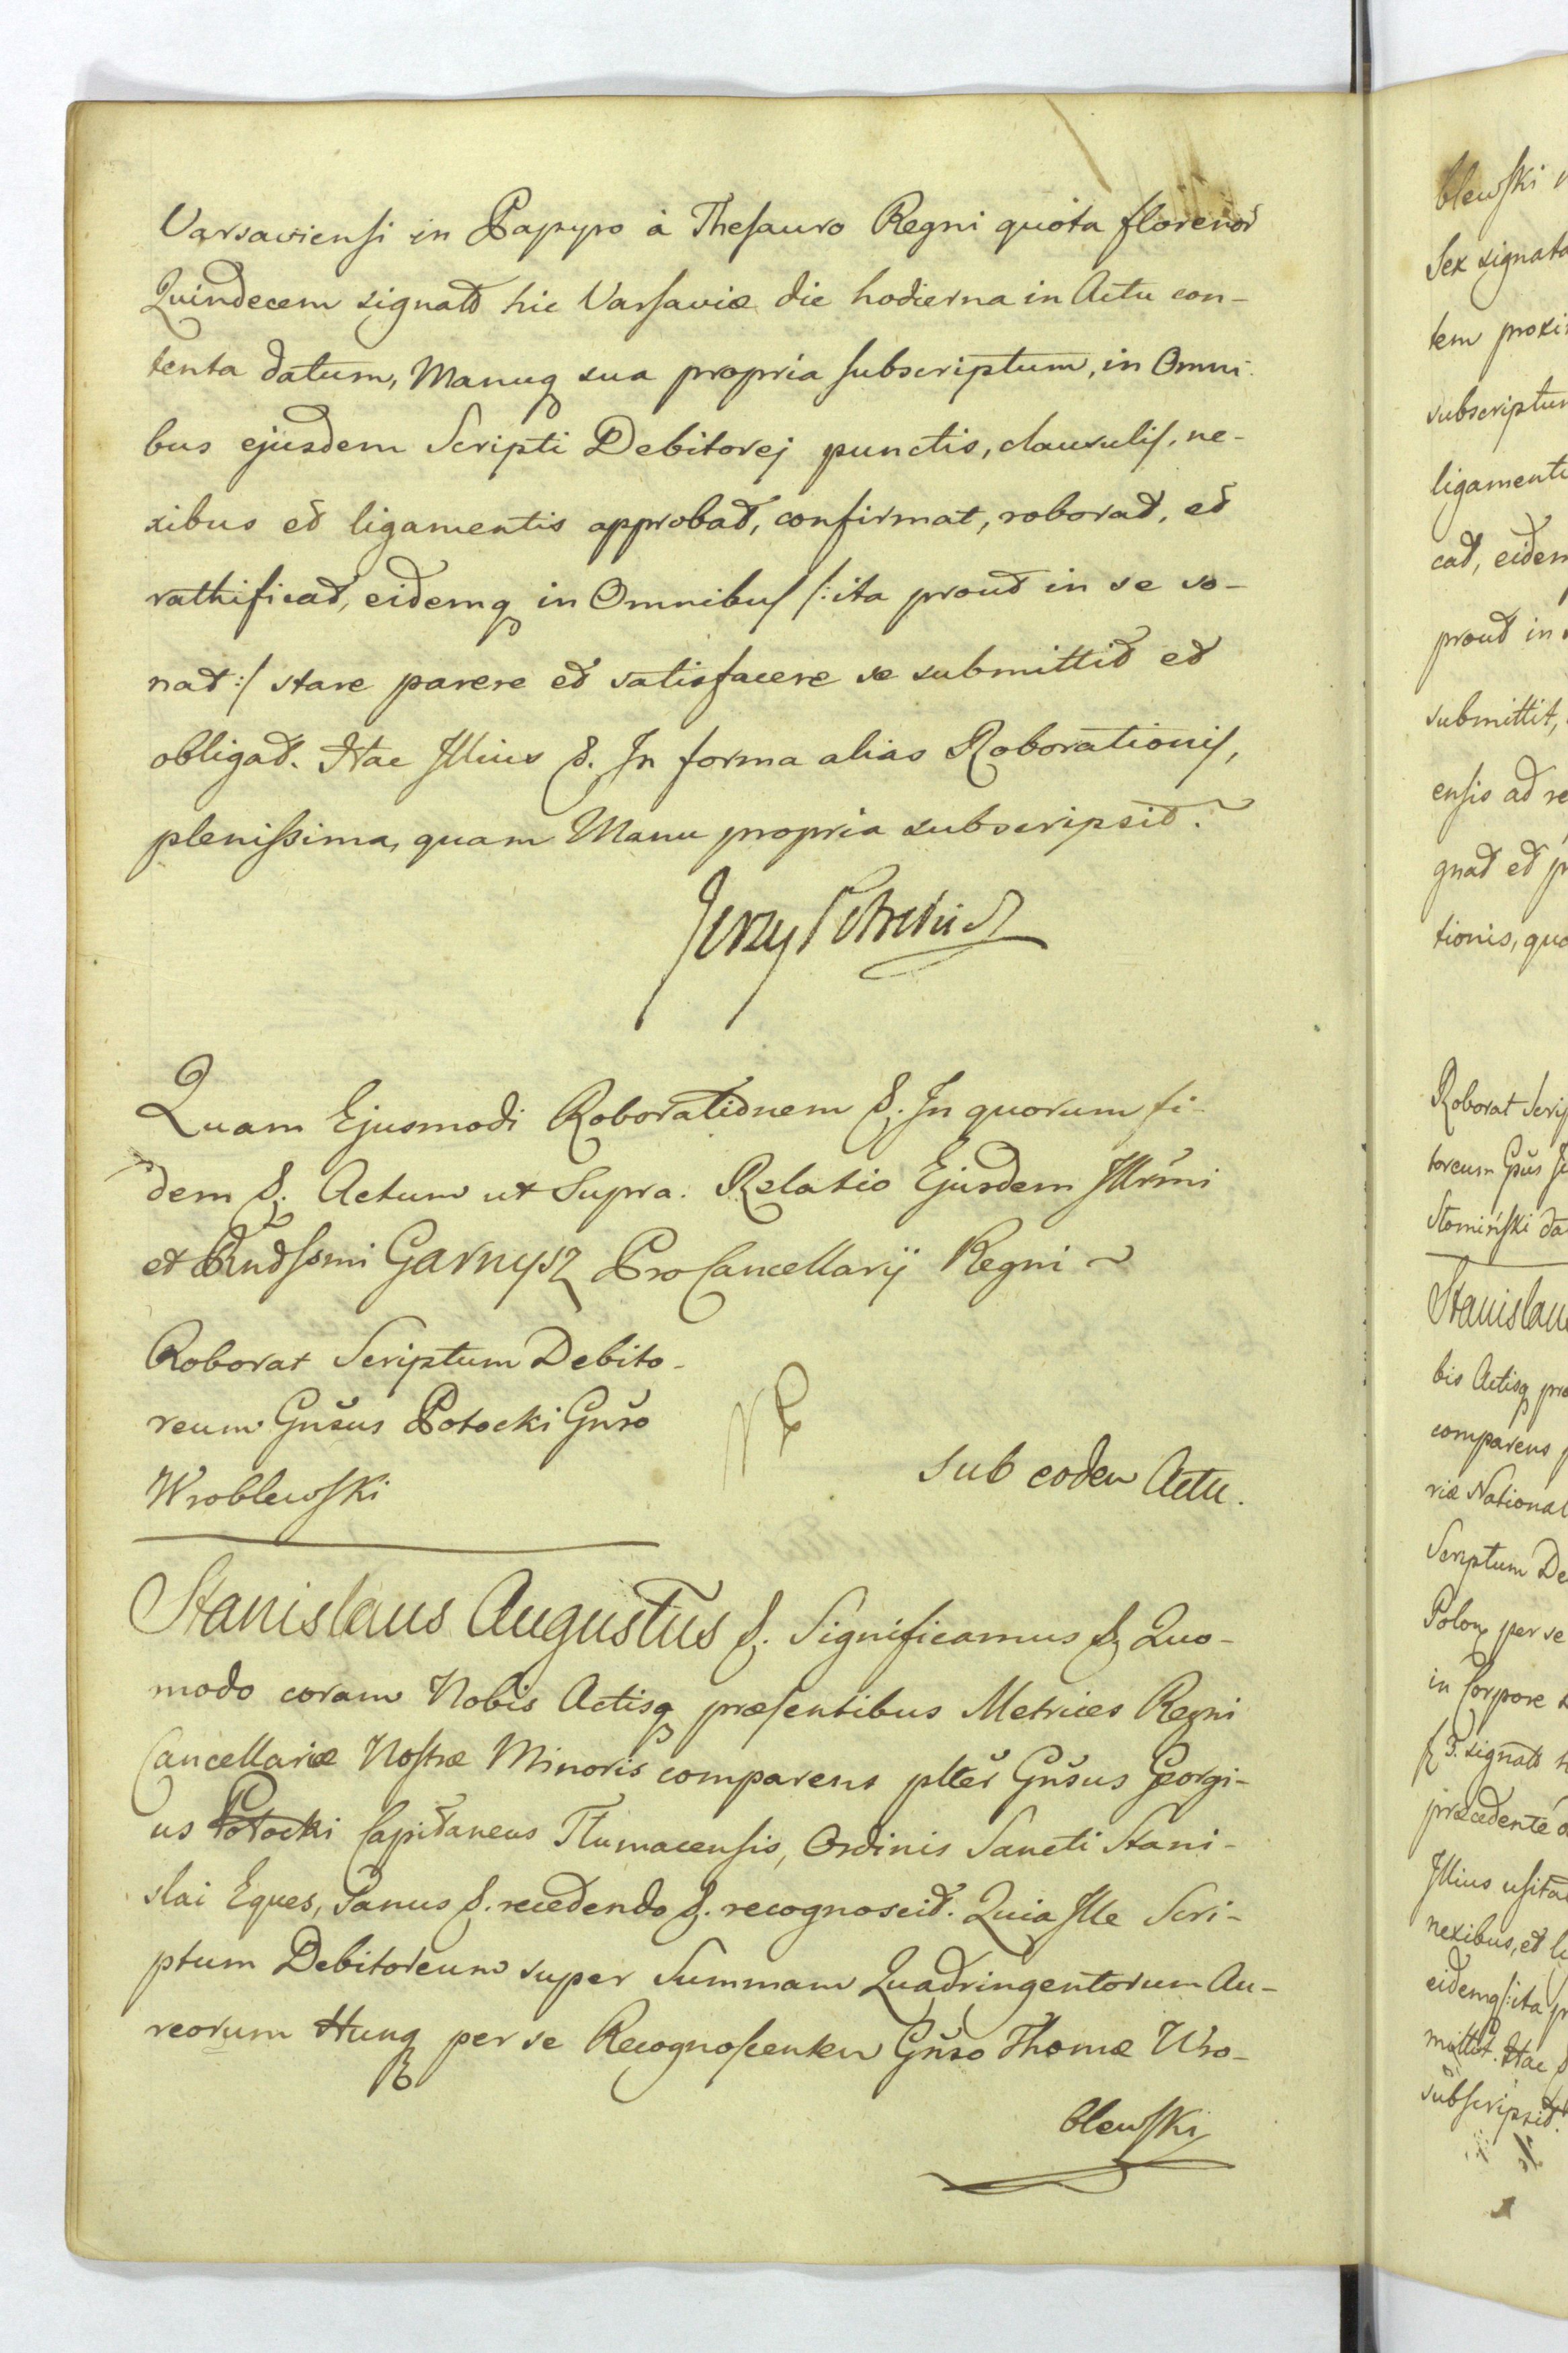 Varsaviensi in Papyro à Thesauro Regni quota florenor
Quindecem signato hic Varsaviæ die hodierna in Actu con-
tenta datum, Manuq sua propria subscriptum, in Omni-
bus ejusdem Scripti Debitorej punctis, clausulis, ne-
xibus et ligamentis approbat, confirmat, roborat, et
rathificat, eidemq in Omnibus /: ita prout in se so-
nat :/ stare parere et satisfacere se submittit et
obligat. Hac Illius &. In forma alias Roborationis,
plenissima, quam Manu propria subscripsit.
Jerzy
Quam Ejusmodi Roborationem &. In quorum fi-
dem &. Actum ut Supra. Relatio Ejusdem Illrmi
et Rndssmi Garnysz ProCancellarij Regni ~
Roborat Scriptum Debito-
reum Gnsus Potocki Gnso
Wroblewski
sub eodem Actu.
Stanislaus Augustus &. Significamus &. Quo-
modo coram Nobis Actisq præsentibus Metrices Regni
Cancellariæ Nostræ Minoris comparens plter Gnsus Georgi-
us Potocki Capitaneus Tlumacensis, Ordinis Sancti Stani-
slai Eques, Sanus &. recedendo &. recognoscit. Quia Ille Scri-
ptum Debitoreum super Summam Quadringentorum Au-
reorum Hung per se Recognoscentem Gnso Thomæ Wro-
blewski
blewski
Sex signato
tem proxi
subscriptum
ligamenti
cat, eidem
prout in
submittit,
ensis ad re
gnat et p
tionis, qua
Roborat Scrip
toreum Gnsus
Słomiński da
Stanislau
bis Actisq præ
comparens
riæ National
Scriptum De
Polon per se
in Corpore
signato h
præcedente
Illius usita
nexibus, et li
eidemq /: ita p
mittit. Hac
subscripsit.